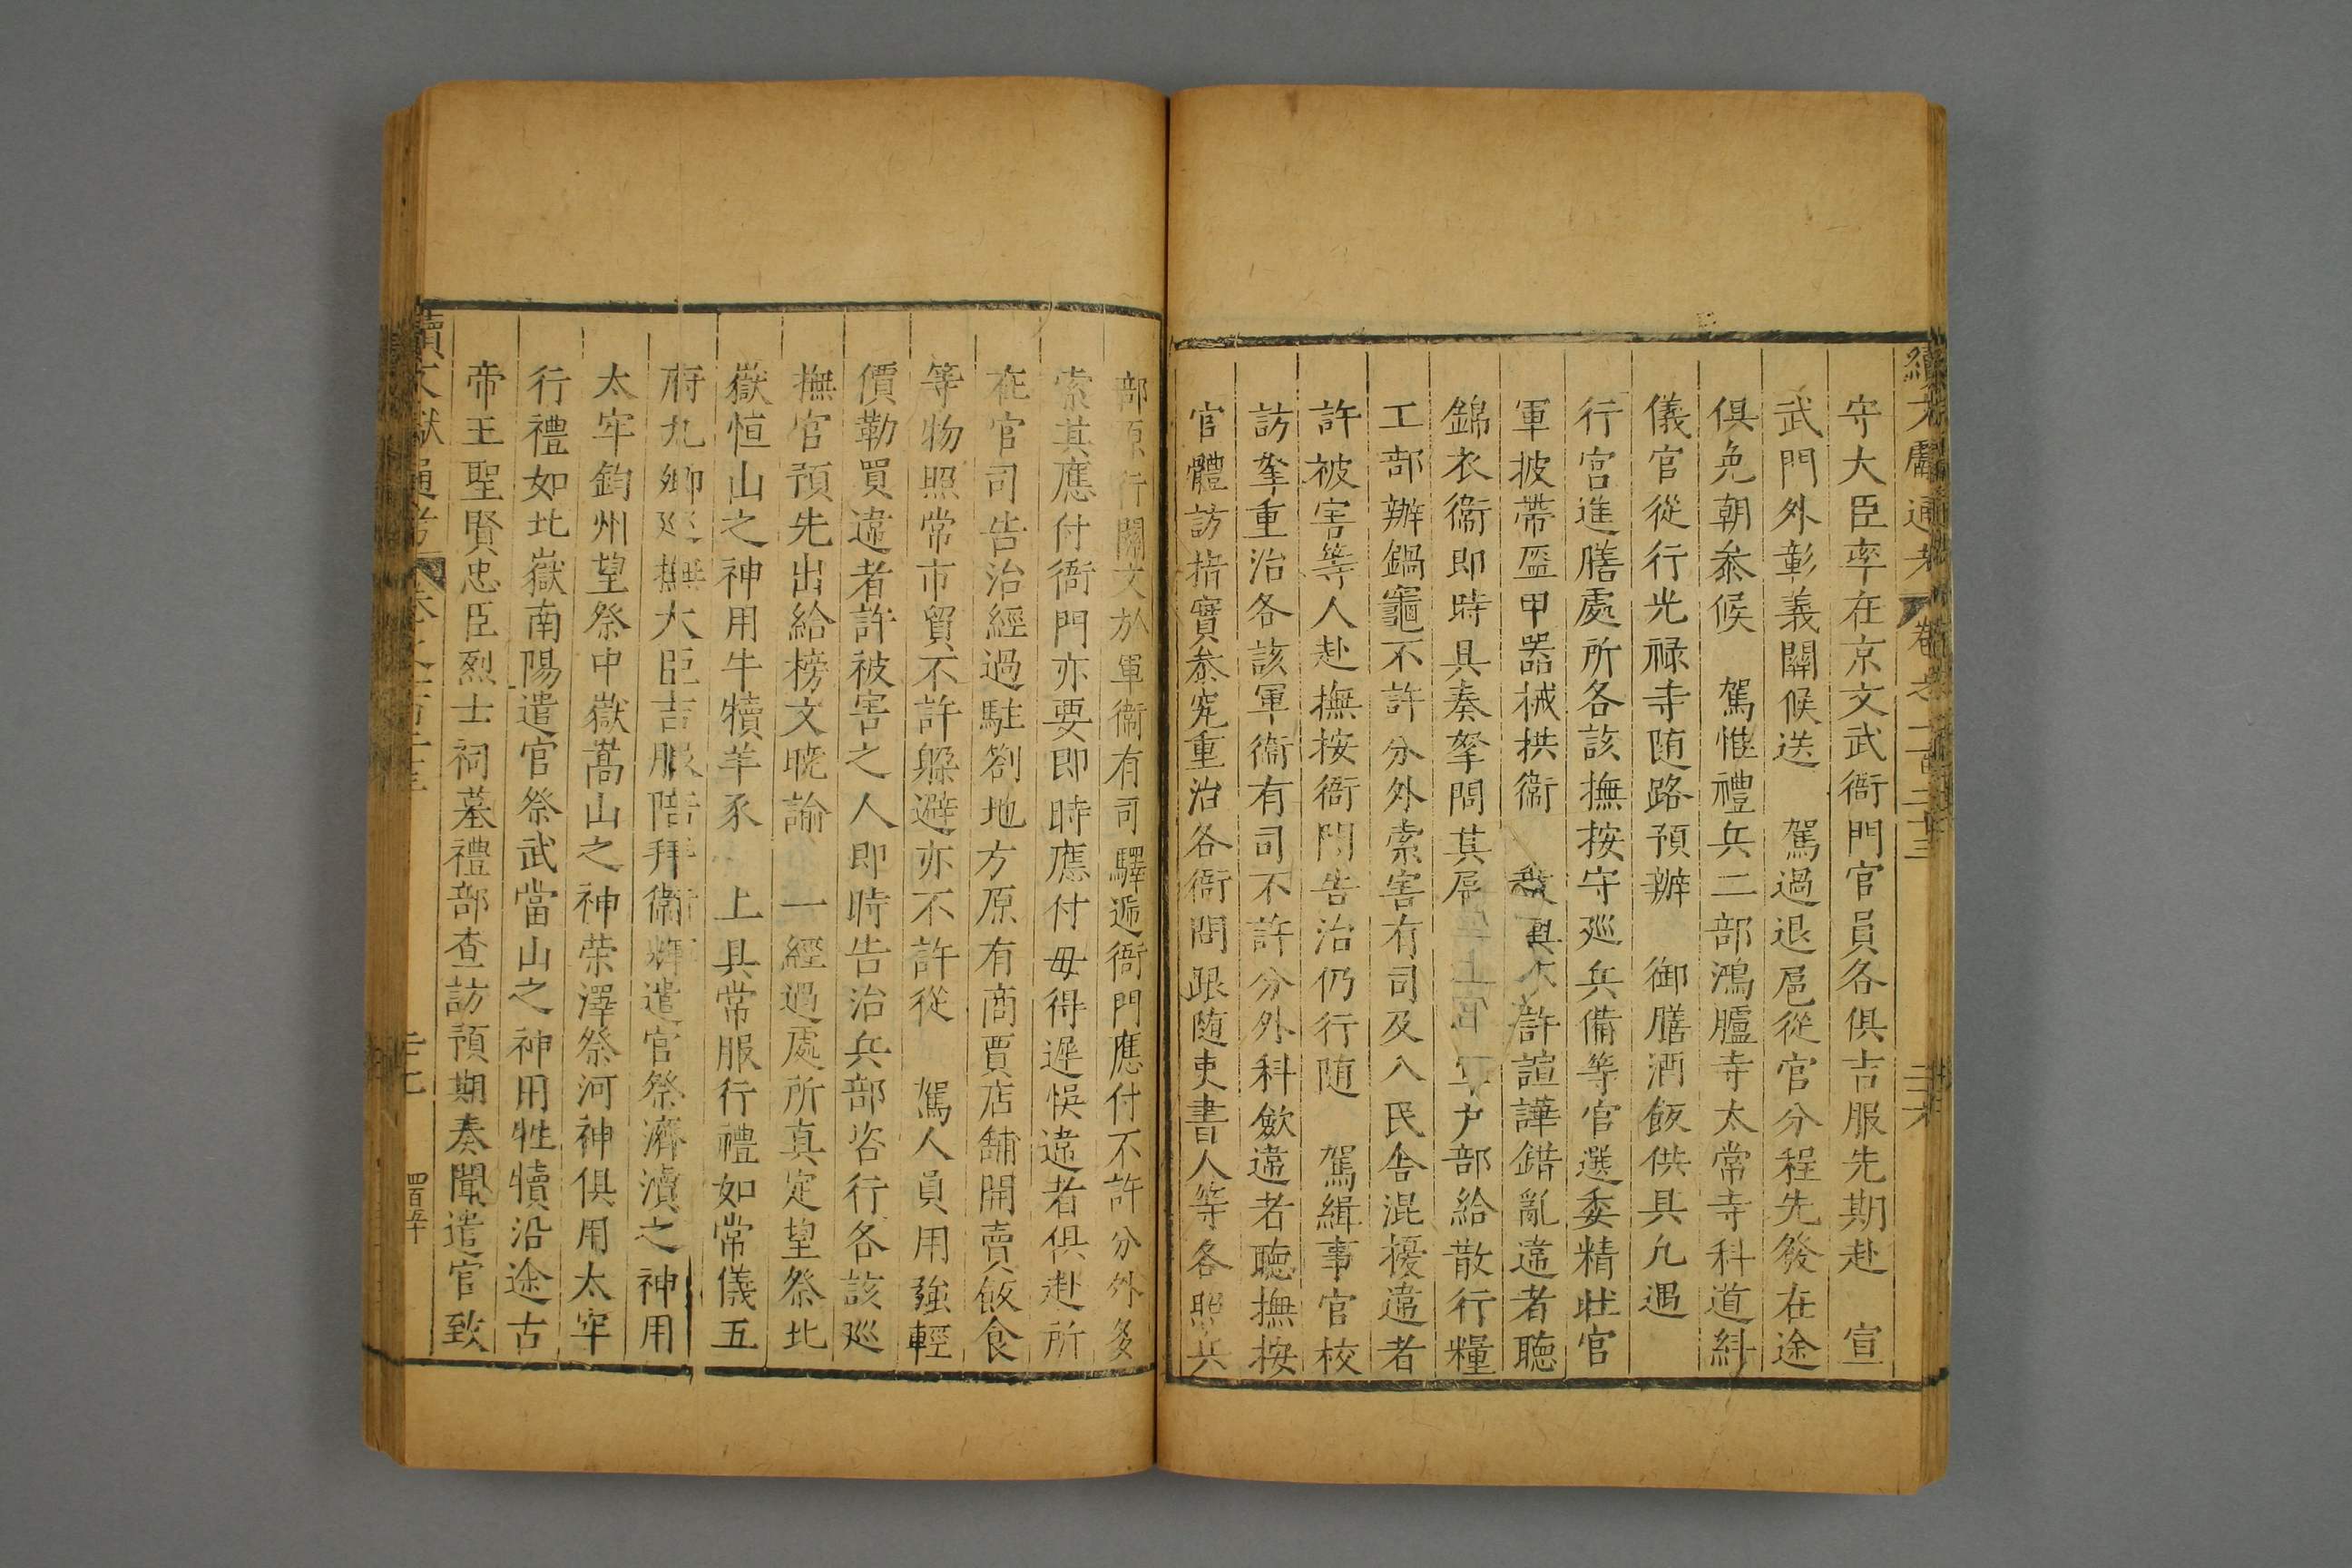 續文獻通考 卷之一百二十三 二十六
守大臣率在京文武衙門官員各俱吉服先期赴 宣
武門外彰義關候送 駕過退扈從官分程先發在途
俱免朝叅候 駕惟禮兵二部鴻臚寺太常寺科道糾
儀官從行光祿寺随路預辦 御膳酒飯供具凡遇
行宮進膳處所各該撫按守廵兵備等官選委精壯官
軍披帶盔甲器械拱衞 許諠譁錯亂違者聽
錦衣衞即時具奏拏問其扈 戶部給散行糧
工部辦鍋竈不許分外索害有司及入民舍混擾違者
許被害等人赴撫按衙門告治仍行随 駕緝事官校
訪拏重治各該軍衞有司不許分外科歛違者聽撫按
官體訪指實叅究重治各衙門跟随吏書人等各照兵
部原行關文於軍衞有司驛遞衙門應付不許分外多
索其應付衙門亦要即時應付毋得遲悞違者俱赴所
在官司告治經過駐劄地方原有商賈店舖開賣飯食
等物照常市貿不許躱避亦不許從 駕人員用強輕
價勒買違者許被害之人即時告治兵部咨行各該廵
撫官預先出給榜文曉諭 一經過處所真定望祭北
嶽恒山之神用牛犢羊豕 上具常服行禮如常儀五
府九卿廵撫大臣吉服陪拜衞輝遣官祭濟瀆之神用
太牢鈞州望祭中嶽嵩山之神荣澤祭河神俱用太牢
行禮如北嶽南陽遣官祭武當山之神用牲犢沿途古
帝王聖賢忠臣烈士祠墓禮部查訪預期奏聞遣官致
續文獻通考 卷之一百二十三 二十七